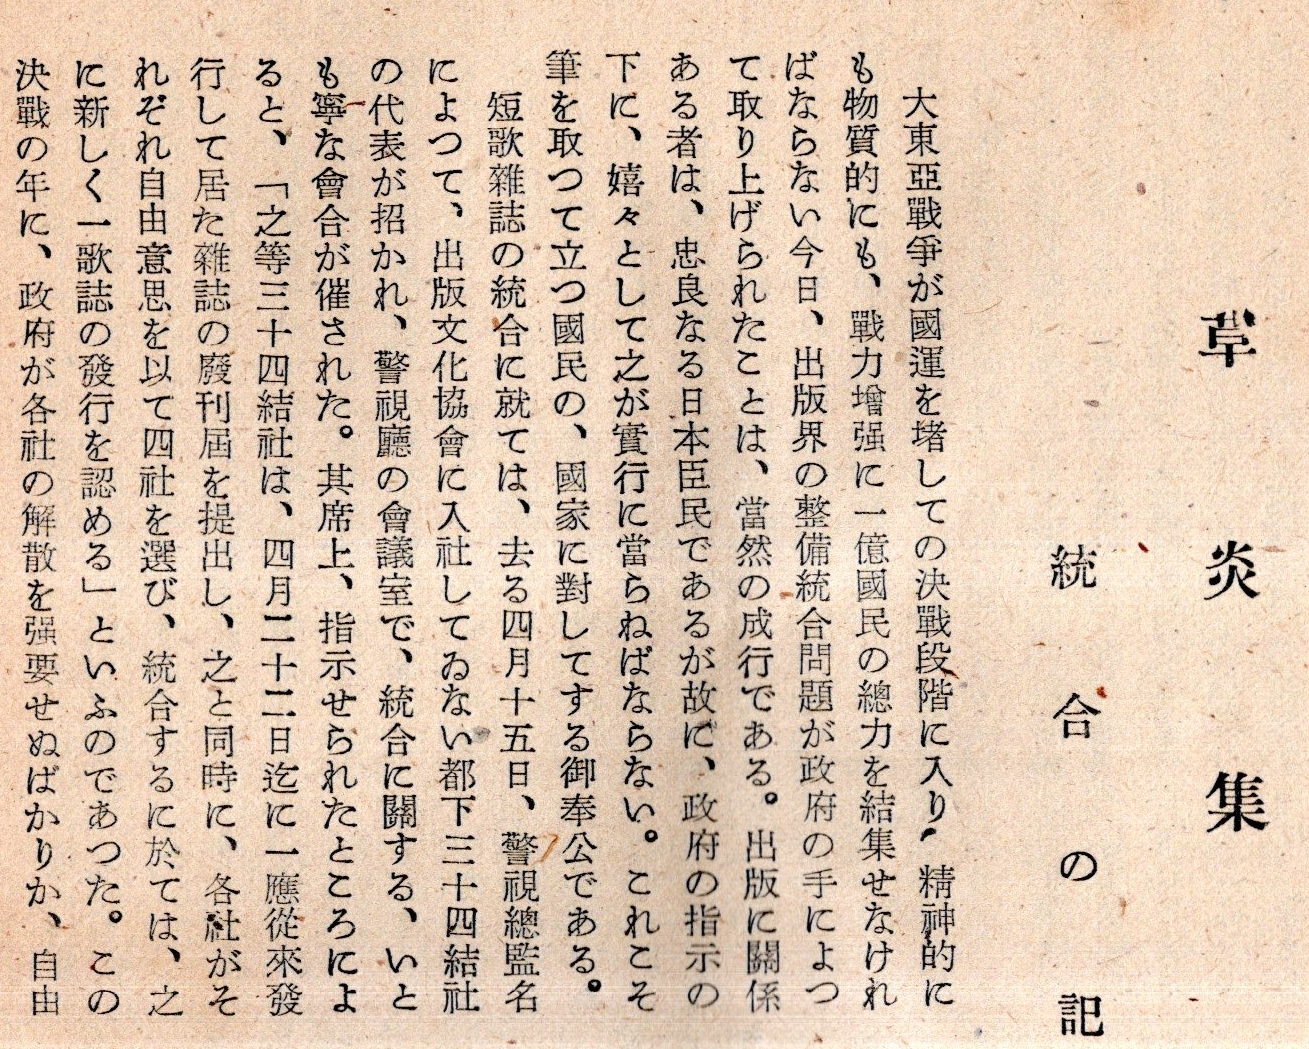 草炎集
統合の記
大東亞戰爭が國運を堵しての決戰段階に入り、精神的に
も物質的にも、戰力增强に一億國民の總力を結集せなけれ
ばならない今日、出版界の整備統合問題が政府の手によつ
て取り上げられたことは、當然の成行である。出版に關係
ある者は、忠良なる日本臣民であるが故に、政府の指示の
下に、嬉々として之が實行に當らねばならない。これこそ
筆を取つて立つ國民の、國家に對してする御奉公である。
短歌雜誌の統合に就ては、去る四月十五日、警視總監名
によつて、出版文化協會に入社してゐない都下三十四結社
の代表が招かれ、警視廳の會議室で、統合に關する、いと
も寧な會合が催された。其席上、指示せられたところによ
ると、「之等三十四結社は、四月二十二日迄に一應從來發
行して居た雜誌の廢刊屆を提出し、之と同時に、各社がそ
れぞれ自由意思を以て四社を選び、統合するに於ては、之
に新しく一歌誌の發行を認める」といふのであつた。この
決戰の年に、政府が各社の解散を强要せぬばかりか、自由